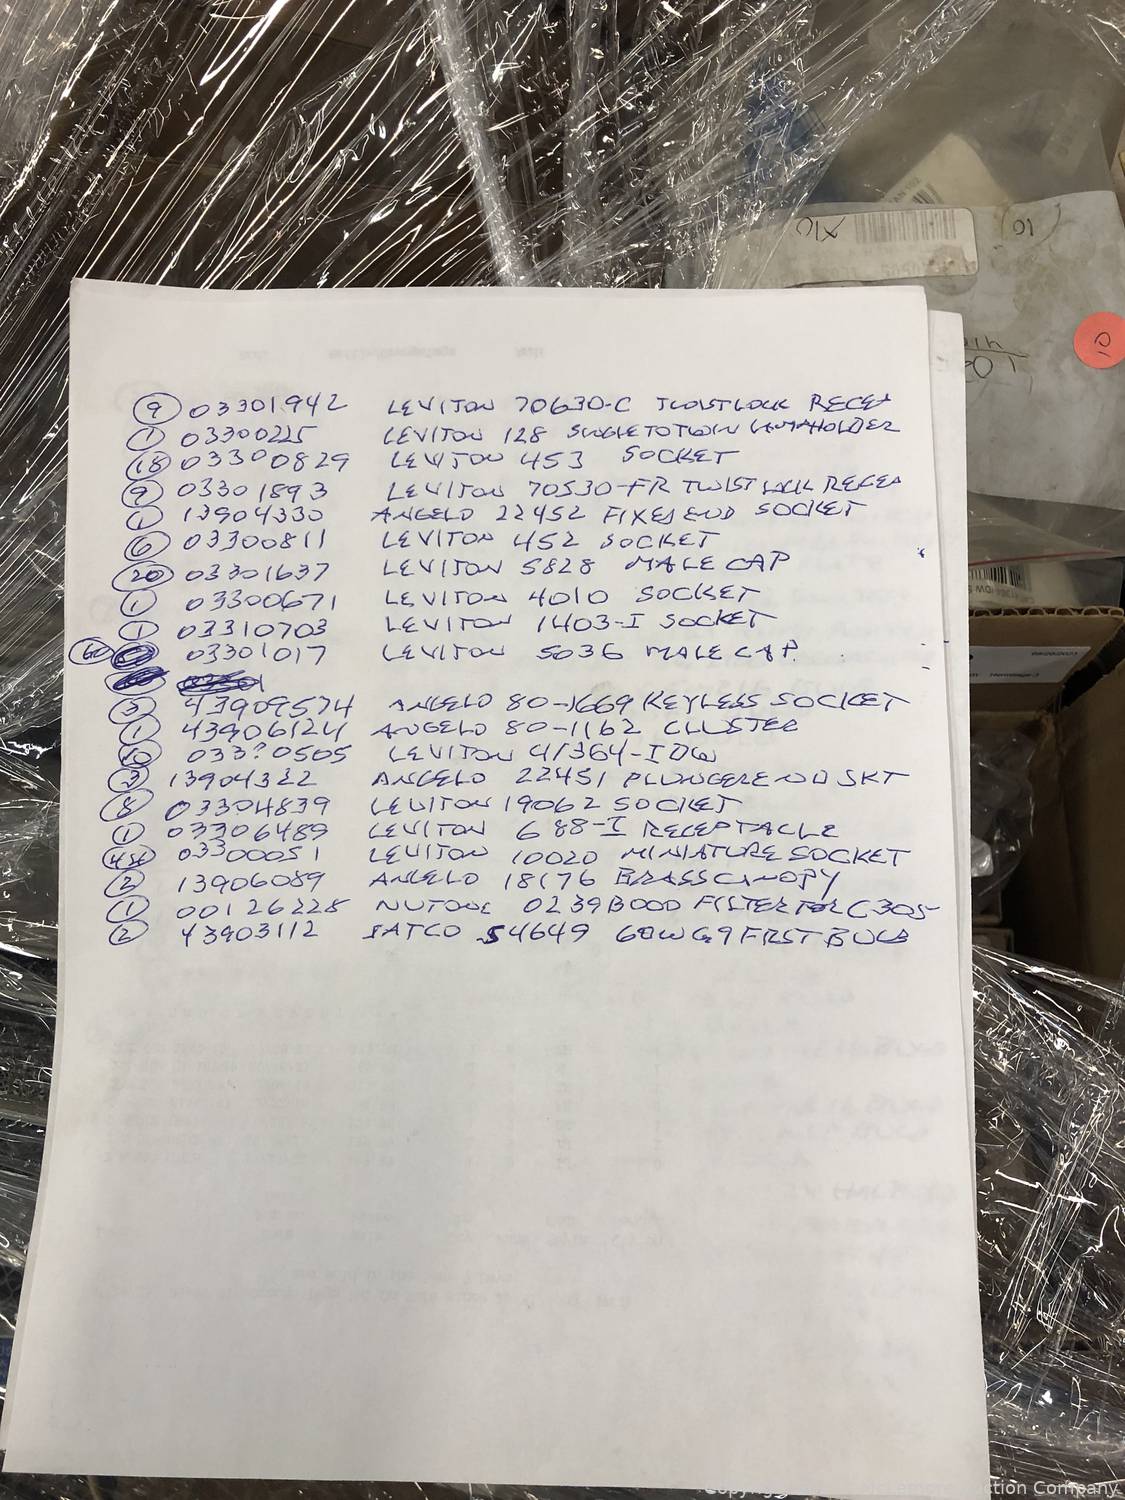 9 03301942 LEVITON 70630-C TWISTLOCK RECEP
1 03300225 LEVITON 128 SINGLE TO TWIN LAMPHOLDER
18 03300829 LEVITON 453 SOCKET
9 03301893 LEVITON 70530-FR TWIST LOCK RECEP
1 13904330 ANGELO 22452 FIXED END SOCKET
6 03300811 LEVITON 452 SOCKET
20 03301637 LEVITON 5828 MALE CAP
1 03300671 LEVITON 4010 SOCKET
1 03310703 LEVITON 1403-I SOCKET
03301017 LEVITON 5036 MALE CAP
5 43909574 ANGELO 80-1669 KEYLESS SOCKET
1 43906124 ANGELO 80-1162 CLUSTER
10 033?0505 LEVITON 41364-IDW
3 13904322 ANGELO 22451 PLUNGER END SKT
8 03304839 LEVITON 19062 SOCKET
1 03306489 LEVITON 688-I RECEPTACLE
03300051 LEVITON 10020 MINIATURE SOCKET
2 13906089 ANGELO 18176 BRASS CANOPY
1 00126228 NUTONE 0239B000 FILTER FOR C305
2 43903112 SATCO S4649 60W G9 FRST BULB
10